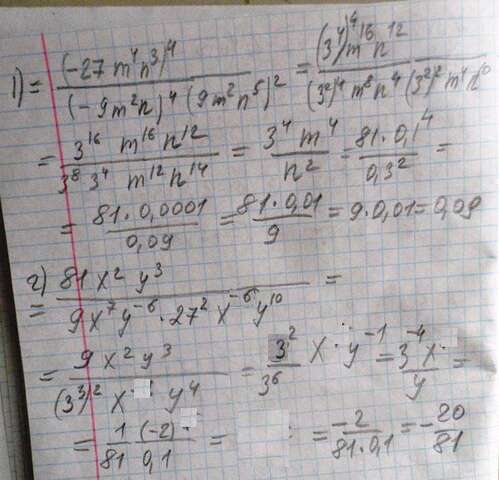 1) = (-27 m⁴n³)⁴ / (-9m²n)⁴ (9m²n⁵)² = (3⁴)⁴ m¹⁶ n¹² / (3²)⁴ m⁸ n⁴ (3²)² m⁴ n¹⁰
= 3¹⁶ m¹⁶ n¹² / 3⁸ 3⁴ m¹² n¹⁴ = 3⁴ m⁴ / n² = 81·0,1⁴ / 0,3² =
= 81·0,0001 / 0,09 = 81·0,01 / 9 = 9·0,01 = 0,09
2) = 81 x² y³ / 9x⁷ y⁻⁶ · 27² x⁻⁶ y¹⁰ =
= 9 x² y³ / (3³)² x y⁴ = 3² / 3⁶ x · y⁻¹ = 3⁻⁴ x / y =
= 1 / 81 (-2) / 0,1 = = -2 / 81·0,1 = -20 / 81